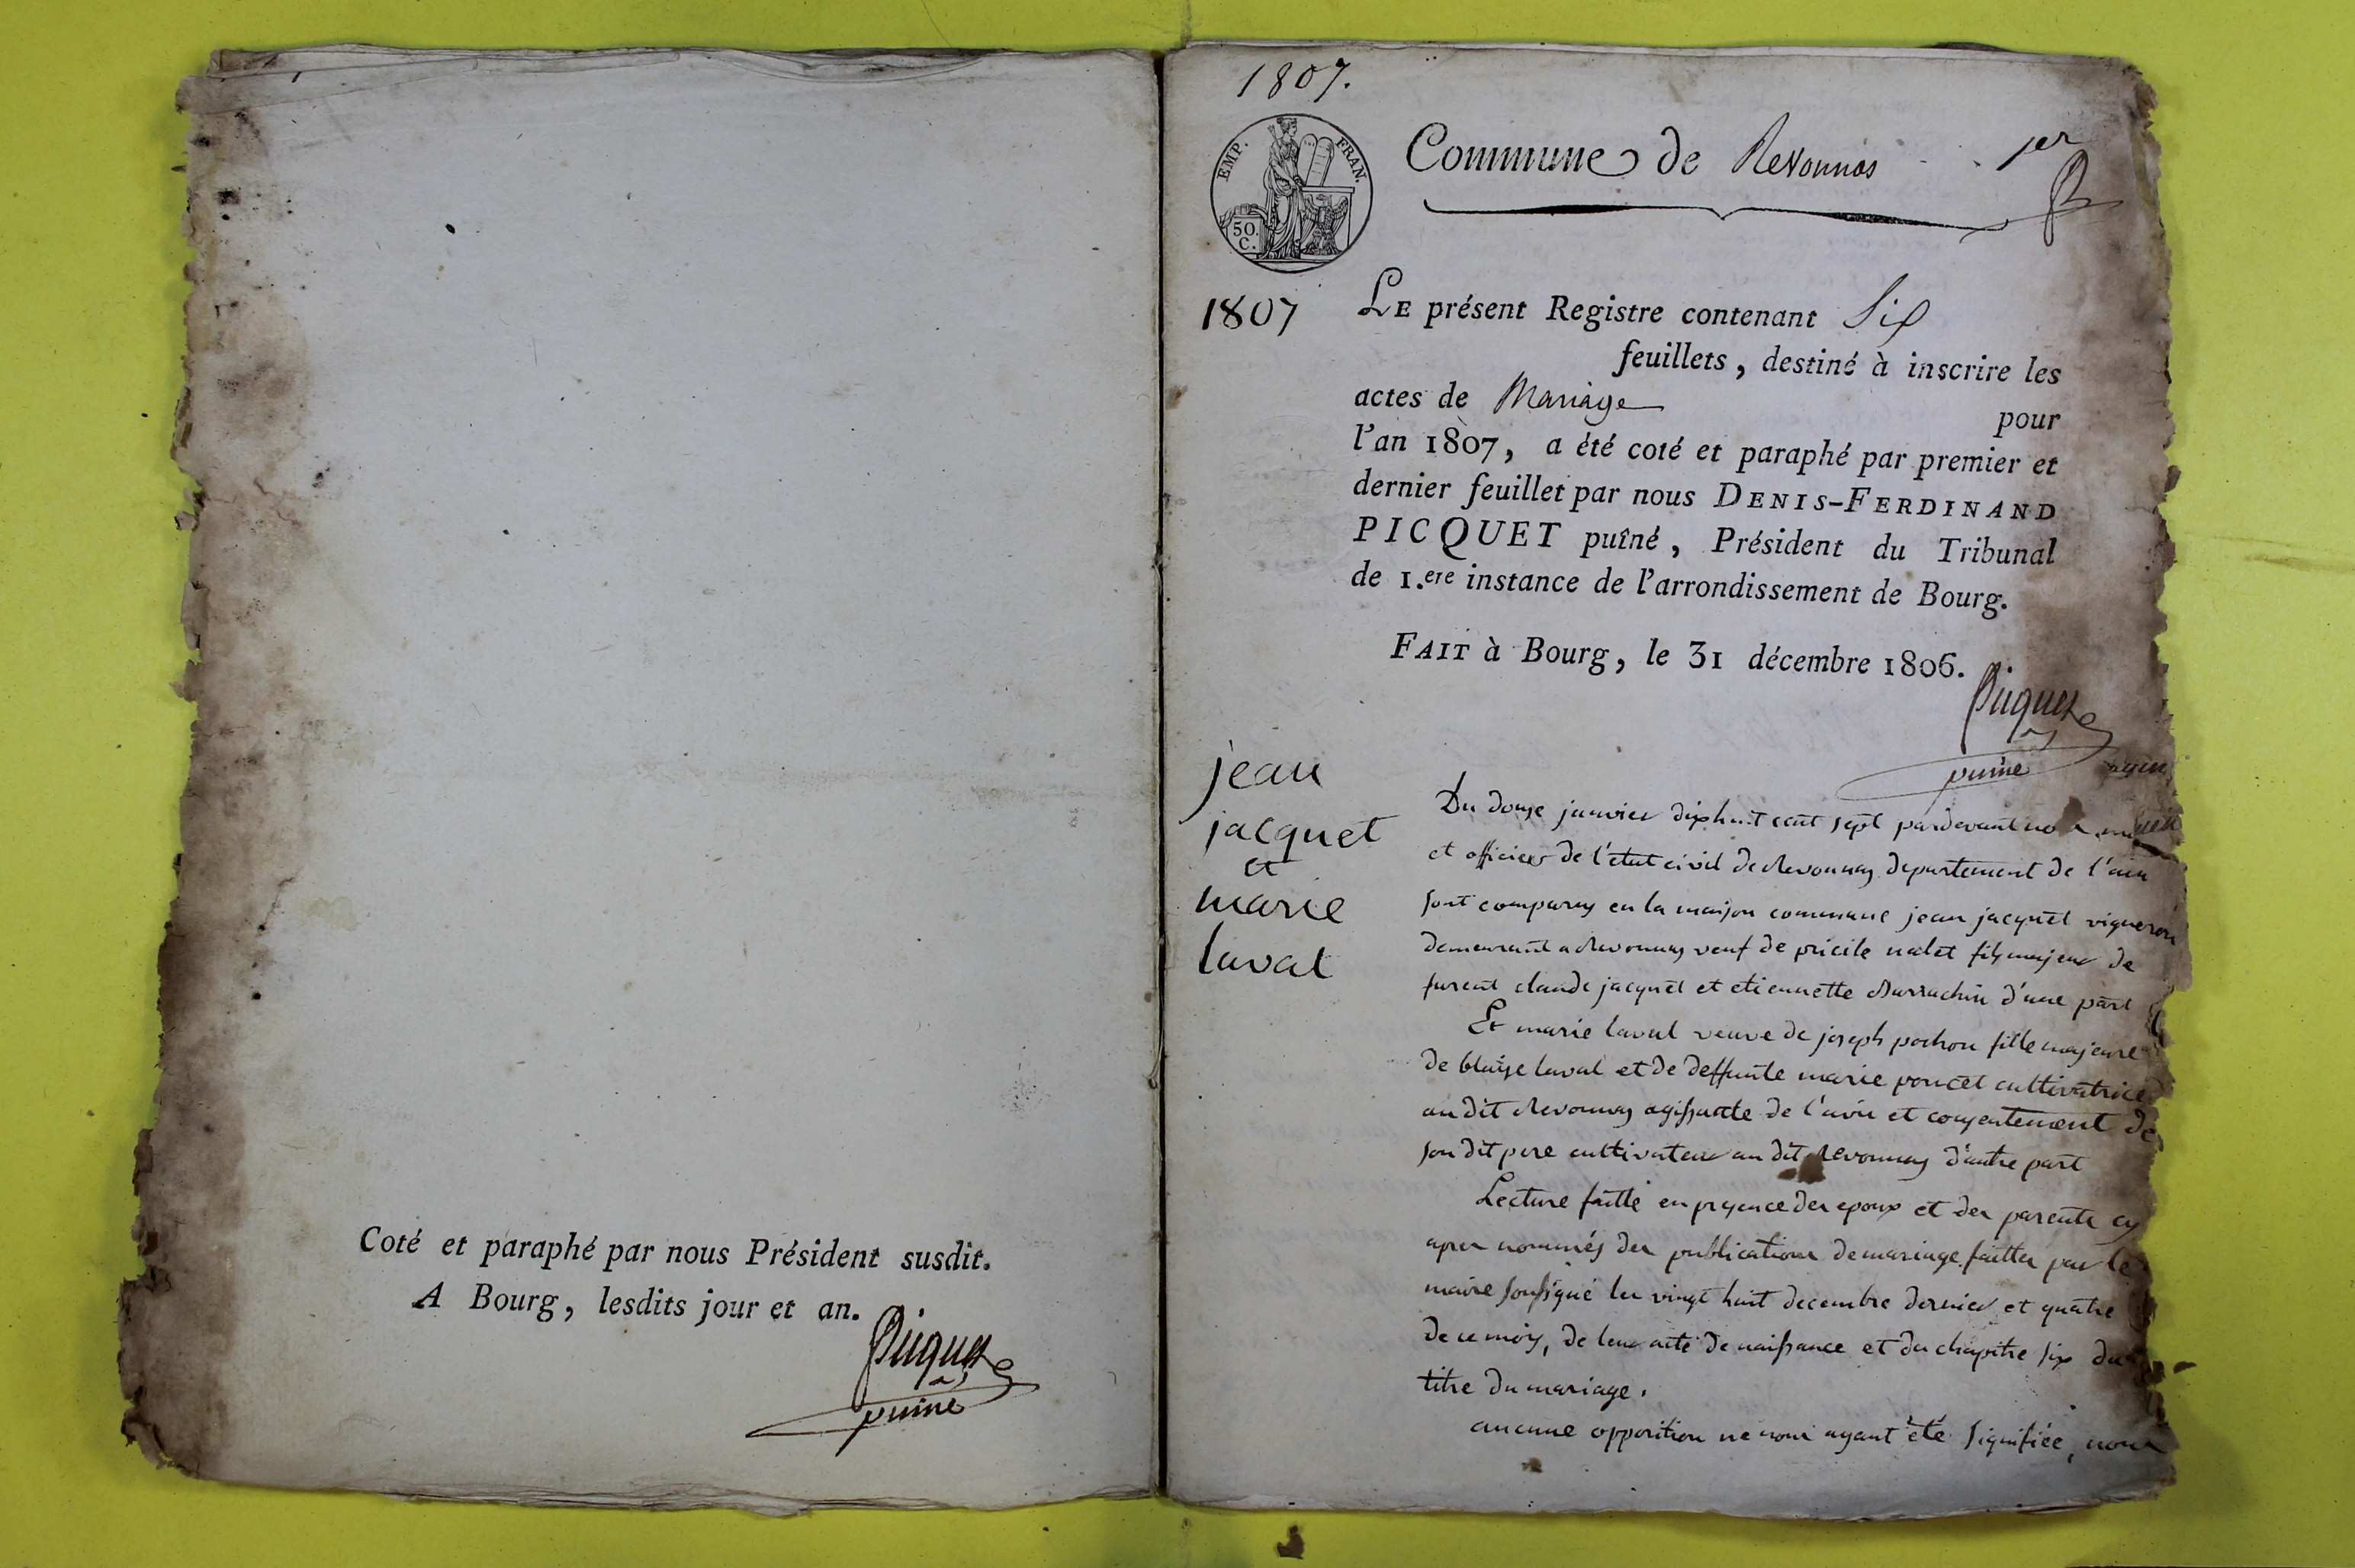 Coté et paraphé par nous Président susdit.
A Bourg, lesdits jour et an.
Picquet
puiné
1807.
EMP. FRAN.
50.
C.
Commune de Revonnas
1er
1807
LE présent Registre contenant Six
feuillets, destiné à inscrire les
actes de Mariage
pour
l'an 1807, a été coté et paraphé par premier et
dernier feuillet par nous DENIS-FERDINAND
PICQUET puîné, Président du Tribunal
de 1.ere instance de l'arrondissement de Bourg.
FAIT à Bourg, le 31 décembre 1806.
Picquet
puiné
jean
jacquet
et
marie
laval
Du douze janvier dix huit cent sept pardevant nous
et officier de l'etat civil de Revonnas departement de l'ain
sont comparus en la maison commune jean jacquet vigneron
demeurant a Revonnas veuf de nalet fils majeur de
furent claude jacquet et etiennette d'une part
Et marie laval veuve de joseph pochon fille majeure
de blaise laval et de deffunte marie poncet cultivatrice
au dit Revonnas agissante de l'avis et consentement de
son dit pere cultivateur au dit Revonnas d'autre part
Lecture faitte en presence des epoux et des parents cy
apres nommés des publications de mariage faittes par le
maire soussigné les vingt huit decembre dernier et quatre
de ce mois, de leur acte de naissance et du chapitre six du
titre du mariage.
aucune opposition ne nous ayant été signifiée, nous